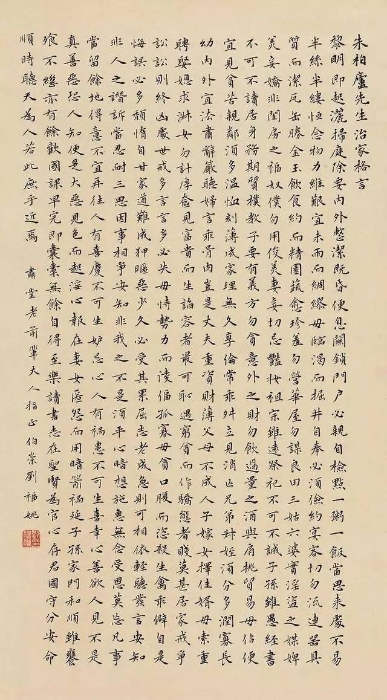 朱柏廬先生治家格言
黎明即起灑掃庭除要內外整潔既昏便息關鎖門戶必親自檢點一粥一飯當思來處不易
半絲半縷恒念物力維艱宜未雨而綢繆毋臨渴而掘井自奉必須儉約宴客切勿流連器具
質而潔瓦缶勝金玉飲食約而精園蔬愈珍羞勿營華屋勿謀良田三姑六婆實淫盜之媒婢
美妾嬌非閨房之福奴僕勿用俊美妻妾切忌豔妝祖宗雖遠祭祀不可不誠子孫雖愚經書
不可不讀居身務期質樸教子要有義方勿貪意外之財勿飲過量之酒與肩挑貿易毋佔便
宜見貧苦親鄰須多溫恤刻薄成家理無久享倫常乖舛立見消亡兄弟叔姪須分多潤寡長
幼內外宜法肅辭嚴聽婦言乖骨肉豈是丈夫重資財薄父母不成人子嫁女擇佳婿毋索重
聘娶媳求淑女勿計厚奩見富貴而生諂容者最可恥遇貧窮而作驕態者賤莫甚居家戒爭
訟訟則終凶處世戒多言言多必失毋恃勢力而凌偪孤寡毋貪口腹而恣殺生禽乖僻自是
悔誤必多頹惰自甘家道難成狎暱惡少久必受其累屈志老成急則可相依輕聽發言安知
非人之譖訴當忍耐三思因事相爭安知非我之不是須平心暗想施惠無念受恩莫忘凡事
當留餘地得意不宜再往人有喜慶不可生妒忌心人有禍患不可生喜幸心善欲人見不是
真善惡恐人知便是大惡見色而起淫心報在妻女匿怨而用暗箭禍延子孫家門和順雖饔
飧不繼亦有餘歡國課早完即囊橐無餘自得至樂讀書志在聖賢為官心存君國守分安命
順時聽天為人若此庶乎近焉 肅堂老前輩大人指正 伯崇劉福姚